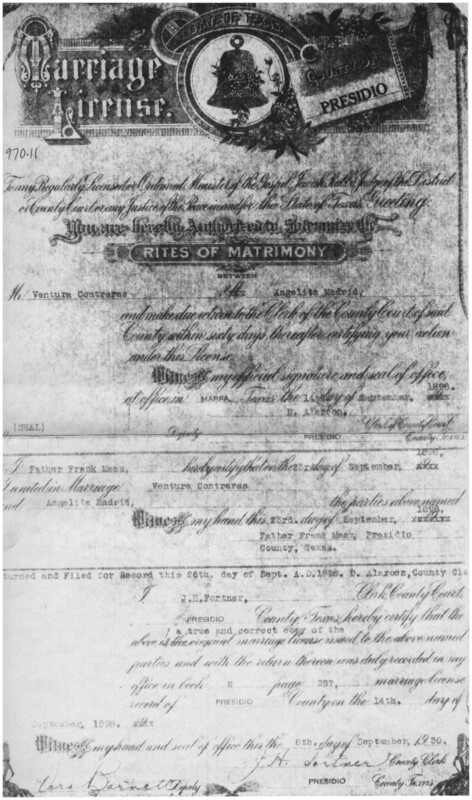 STATE OF TEXAS
Marriage License.
COUNTY OF
PRESIDIO
970-11
To any Regularly Licensed or Ordained Minister of the Gospel, Jewish Rabbi, Judge of the District
or County Court or any Justice of the Peace in and for the State of Texas, Greeting:
You are hereby Authorized to Solemnize the
RITES OF MATRIMONY
BETWEEN
Mr Ventura Contreras Angelita Madrid,
and make due return to the Clerk of the County Court of said
County within sixty days thereafter, certifying your action
under this License.
Witness my official signature and seal of office,
at office in MARFA Texas the 14 day of September, 1898.
D. Alarcon.
(SEAL) Clerk of County Court
Deputy PRESIDIO County, Texas
I Father Frank Mass, hereby certify that on the 23rd day of September, 1898,
I united in Marriage Ventura Contreras
and Angelita Madrid, the parties above named
Witness my hand this 23rd. day of September, 1898.
Father Frank Mass, Presidio
County, Texas.
turned and Filed for Record this 26th, day of Sept. A.D.1898. D. Alarcon,County Cle
I, J.H.Fortner, Clerk County Court,
PRESIDIO County, Texas, hereby certify that the
a true and correct copy of the
above is the original marriage license issued to the above named
parties and with the return thereon was duly recorded in my
office in book 2 page 257, marriage license
record of PRESIDIO County on the 14th. day of
September, 1898.
Witness my hand and seal of office this the 8th. day of September, 1930.
J.H. Fortner County Clerk
Cora Barnett Deputy PRESIDIO County, Texas